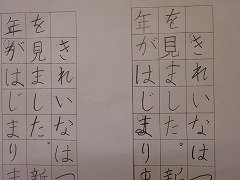 きれいなはつ
を見ました。新
年がはじまりま
きれいなはつ
を見ました。新
年がはじまりま